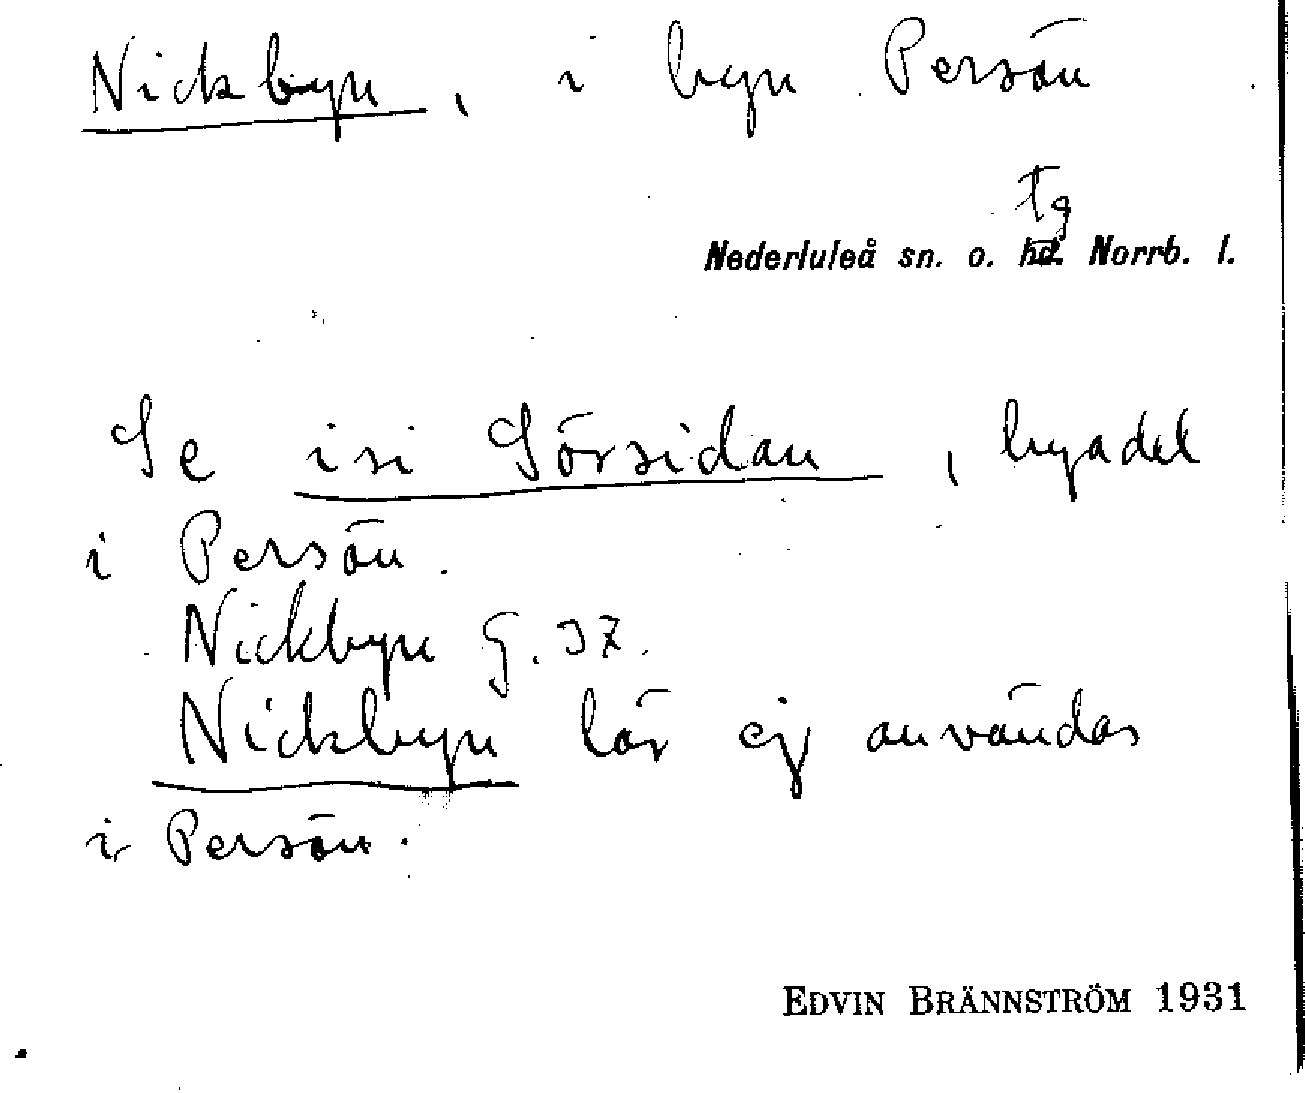 Nickbyn, i byn Persön
tg
Nederluleå sn. o. hd. Norrb. l.
Se isi Sörsidan, byadel
i Persön.
Nickbyn G. JZ.
Nickbyn lär ej användas
i Persön.
EDVIN BRÄNNSTRÖM 1931